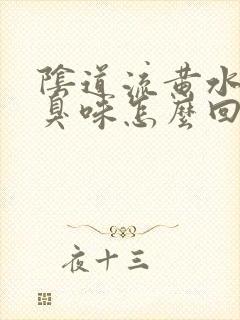 陰道流黃水
臭味怎麼回
夜十三